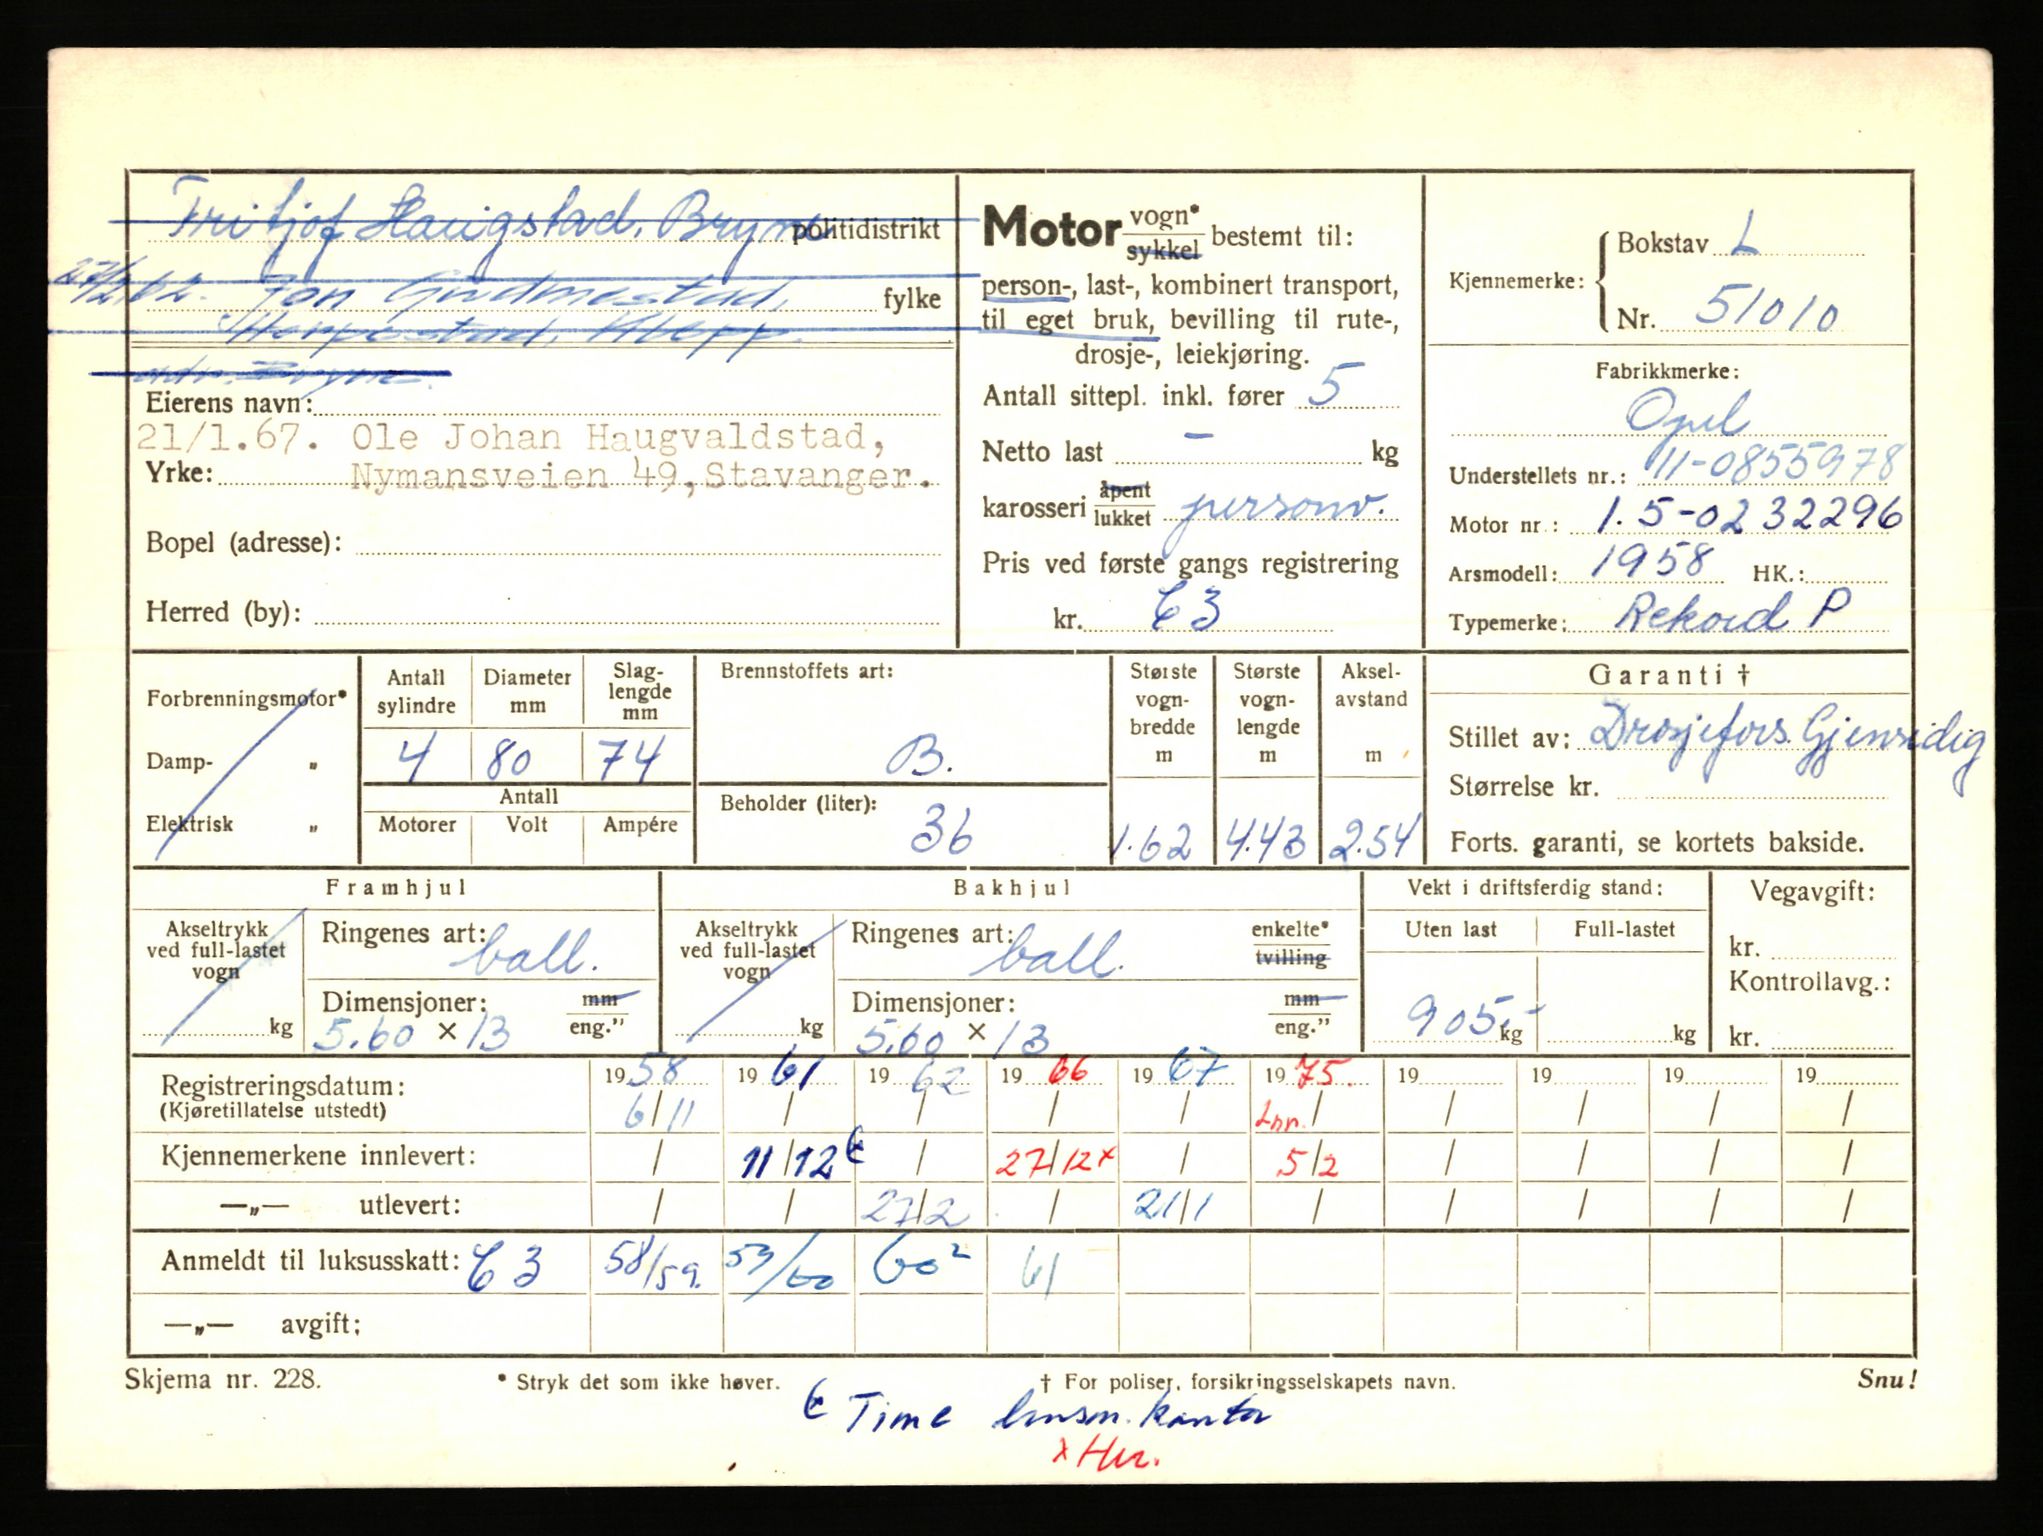 Fritjof Haugstad, Bryne politidistrikt
27/2.62. Jon Gudmestad, fylke
Horpestad, Klepp.
adr. Bryne.
Eierens navn:
21/1.67. Ole Johan Haugvaldstad,
Yrke: Nymansveien 49, Stavanger.
Bopel (adresse):
Herred (by):
Motor vogn* sykkel bestemt til:
person-, last-, kombinert transport,
til eget bruk, bevilling til rute-,
drosje-, leiekjøring.
Antall sittepl. inkl. fører 5
Netto last - kg
karosseri åpent lukket personv.
Pris ved første gangs registrering
kr. C3
Kjennemerke: Bokstav L
Nr. 51010
Fabrikkmerke:
Opel
Understellets nr.: 11-0855978
Motor nr.: 1.5-0232296
Arsmodell: 1958 HK.:
Typemerke: Rekord P
Forbrenningsmotor*
Damp- „
Elektrisk „
Antall sylindre 4
Diameter mm 80
Slaglengde mm 74
Antall
Motorer Volt Ampére
Brennstoffets art:
B.
Beholder (liter):
36
Største vognbredde m 1.62
Største vognlengde m 4.43
Akselavstand m 2.54
Garanti †
Stillet av: Drosjefors. Gjensidig
Størrelse kr.
Forts. garanti, se kortets bakside.
Framhjul
Akseltrykk ved full-lastet vogn kg
Ringenes art: ball.
Dimensjoner: mm
5.60 × 13 eng.”
Bakhjul
Akseltrykk ved full-lastet vogn kg
Ringenes art: ball. enkelte* tvilling
Dimensjoner: mm
5.60 × 13 eng.”
Vekt i driftsferdig stand:
Uten last Full-lastet
905,- kg kg
Vegavgift:
kr.
Kontrollavg.:
kr.
Registreringsdatum: 1958 1961 1962 1966 1967 1975. 19 19 19 19
(Kjøretillatelse utstedt) 6/11 / / / / Inn. / / / / /
Kjennemerkene innlevert: / 11/12 / 27/12 x / 5/2 / / / /
—„— utlevert: / / 27/2 / 21/1 / / / / /
Anmeldt til luksusskatt: C3 58/59. 59/60 60² 61
—„— avgift:
Skjema nr. 228. * Stryk det som ikke høver. † For poliser, forsikringsselskapets navn. Snu!
Time lensm. kontor
x Her.